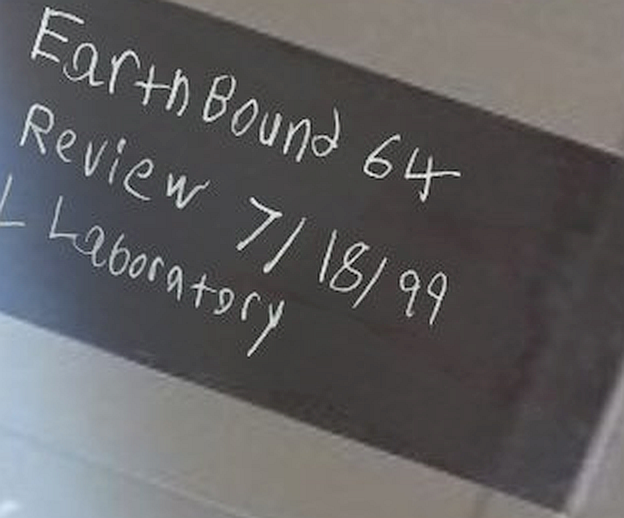 EarthBound 64
Review 7/18/99
L Laboratory